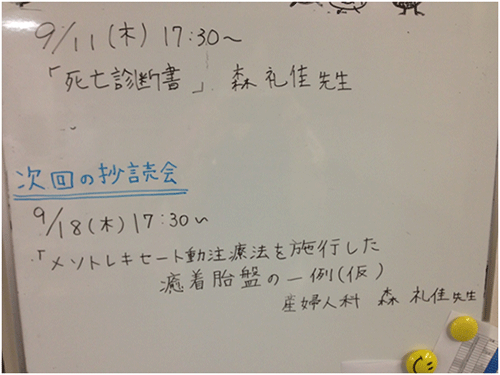 9/11(木) 17:30～
「死亡診断書」 森 礼佳 先生
次回の抄読会
9/18(木) 17:30～
「メソトレキセート動注療法を施行した
癒着胎盤の一例(仮)
産婦人科 森 礼佳 先生